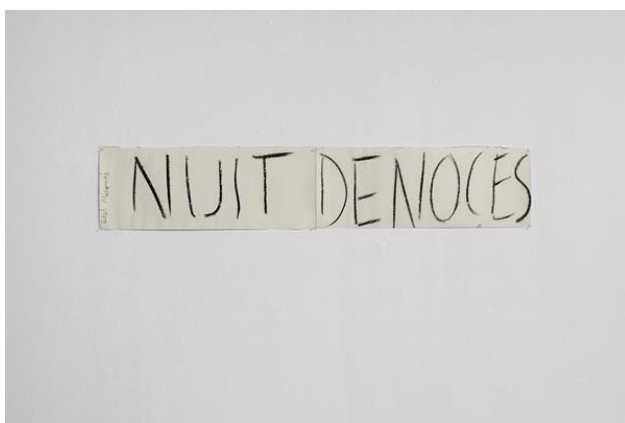 NUIT DE NOCES